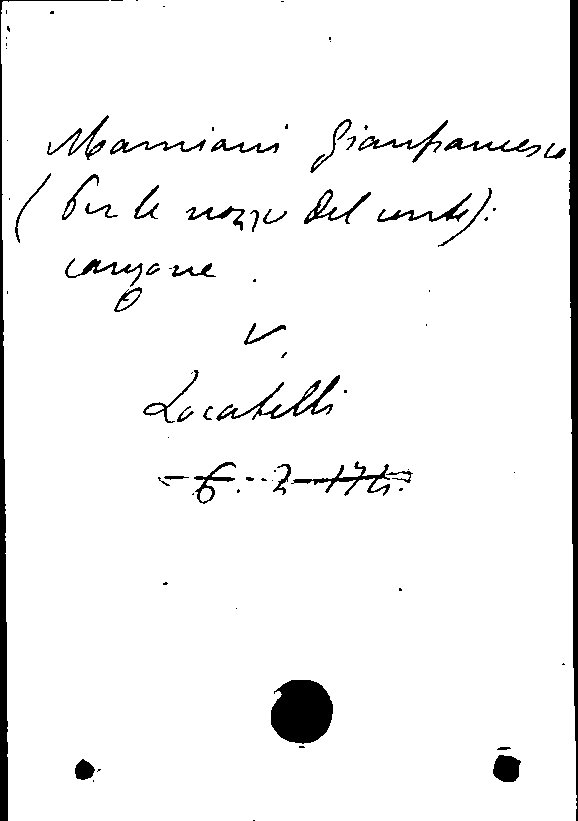 Mamiani Gianfrancesco
(Per le nozze del conte):
canzone.
V.
Locatelli
6. 2